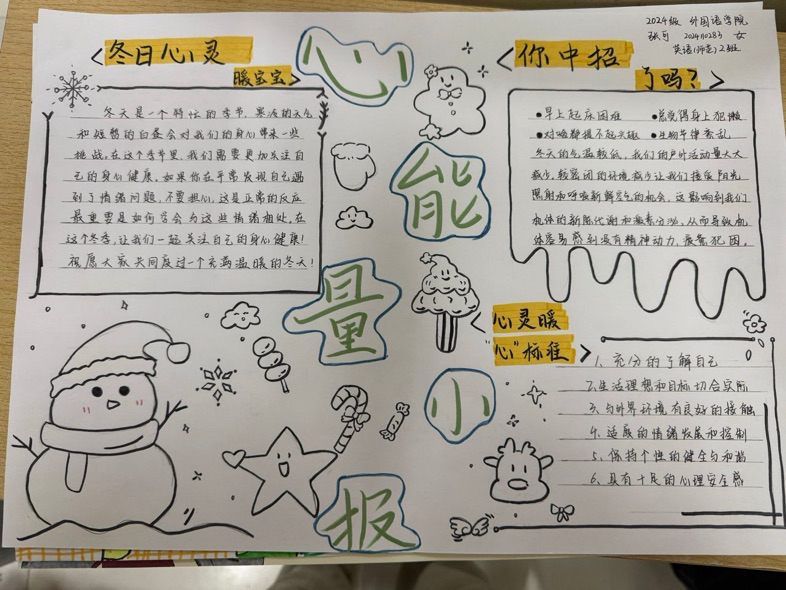 2024级 外国语学院
张可 2024110283 女
英语(师范)2班
冬日心灵
暖宝宝
冬天是一个特性的季节,寒冷的天气
和短暂的白昼会对我们的身心带来一些
挑战,在这个季节里,我们需要更加关注自
己的身心健康,如果你在平常发现自己遇
到了情绪问题,不要担心,这是正常的反应
最重要是如何学会与这些情绪相处,在
这个冬季,让我们一起关注自己的身心健康!
祝愿大家共同度过一个充满温暖的冬天!
心
能
量
小
报
你中招
了吗?
•早上起床困难 •总觉得身上犯懒
•对啥都提不起兴趣 •生物节律紊乱
冬天的气温较低,我们的户外活动量大大
减少,较密闭的环境减少让我们接受阳光
照射和呼吸新鲜空气的机会,这影响到我们
机体的新陈代谢和激素分泌,从而导致机
体容易感到没有精神动力,疲惫犯困。
心灵暖
"心"标准
1、充分的了解自己
2、生活理想和目标切合实际
3、与外界环境有良好的接触
4、适度的情绪发展和控制
5、保持个性的健全与和谐
6、具有十足的心理安全感